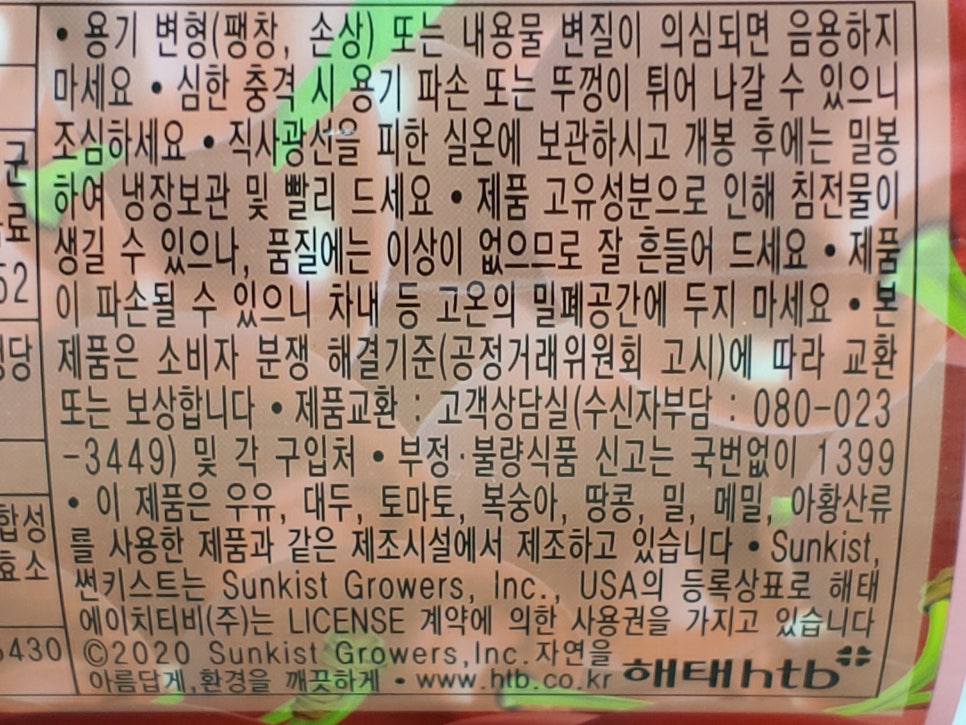 • 용기 변형(팽창, 손상) 또는 내용물 변질이 의심되면 음용하지
마세요 • 심한 충격 시 용기 파손 또는 뚜껑이 튀어 나갈 수 있으니
조심하세요 • 직사광선을 피한 실온에 보관하시고 개봉 후에는 밀봉
하여 냉장보관 및 빨리 드세요 • 제품 고유성분으로 인해 침전물이
생길 수 있으나, 품질에는 이상이 없으므로 잘 흔들어 드세요 • 제품
이 파손될 수 있으니 차내 등 고온의 밀폐공간에 두지 마세요 • 본
제품은 소비자 분쟁 해결기준(공정거래위원회 고시)에 따라 교환
또는 보상합니다 • 제품교환 : 고객상담실(수신자부담 : 080-023
-3449) 및 각 구입처 • 부정·불량식품 신고는 국번없이 1399
• 이 제품은 우유, 대두, 토마토, 복숭아, 땅콩, 밀, 메밀, 아황산류
를 사용한 제품과 같은 제조시설에서 제조하고 있습니다 • Sunkist,
썬키스트는 Sunkist Growers, Inc., USA의 등록상표로 해태
에이치티비(주)는 LICENSE 계약에 의한 사용권을 가지고 있습니다
©2020 Sunkist Growers,Inc. 자연을
아름답게,환경을 깨끗하게 • www.htb.co.kr 해태htb
군
료
52
당
합성
효소
430